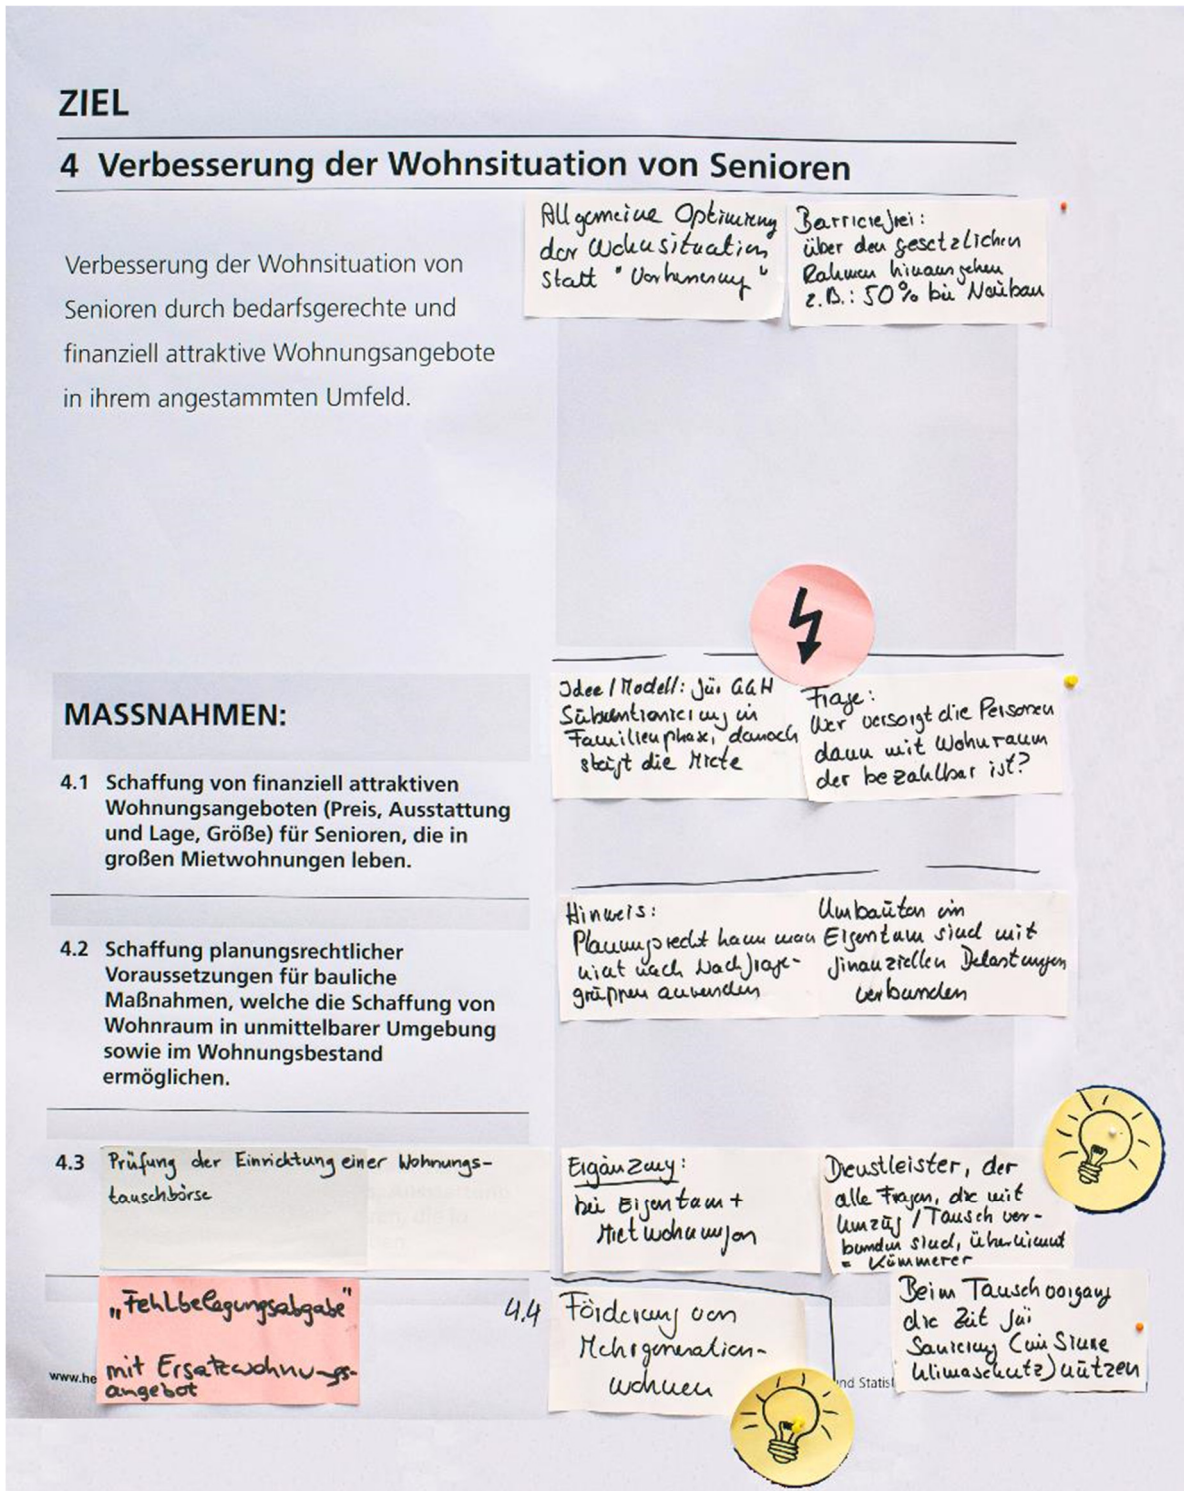 ZIEL
4 Verbesserung der Wohnsituation von Senioren
Verbesserung der Wohnsituation von
Senioren durch bedarfsgerechte und
finanziell attraktive Wohnungsangebote
in ihrem angestammten Umfeld.
Allgemeine Optimierung
der Wohnsituation
statt "Verbesserung"
Barrierefrei:
über den gesetzlichen
Rahmen hinausgehen
z.B.: 50% bei Neubau
MASSNAHMEN:
4.1 Schaffung von finanziell attraktiven
Wohnungsangeboten (Preis, Ausstattung
und Lage, Größe) für Senioren, die in
großen Mietwohnungen leben.
Idee/Modell: für GGH
Subventionierung in
Familienphase, danach
steigt die Miete
Frage:
Wer versorgt die Personen
dann mit Wohnraum
der bezahlbar ist?
4.2 Schaffung planungsrechtlicher
Voraussetzungen für bauliche
Maßnahmen, welche die Schaffung von
Wohnraum in unmittelbarer Umgebung
sowie im Wohnungsbestand
ermöglichen.
Hinweis:
Planungsrecht kann man
nicht nach Nachfrage-
gruppen anwenden
Umbauten im
Eigentum sind mit
finanziellen Belastungen
verbunden
4.3 Prüfung der Einrichtung einer Wohnungs-
tauschbörse
Ergänzung:
bei Eigentum +
Mietwohnungen
Dienstleister, der
alle Fragen, die mit
Umzug/Tausch ver-
bunden sind, übernimmt
= Kümmerer
„Fehlbelegungsabgabe"
mit Ersatzwohnungs-
angebot
4.4 Förderung von
Mehrgeneration-
wohnen
Beim Tauschvorgang
die Zeit für
Sanierung (im Sinne
Klimaschutz) nützen
www.he
nd Statis